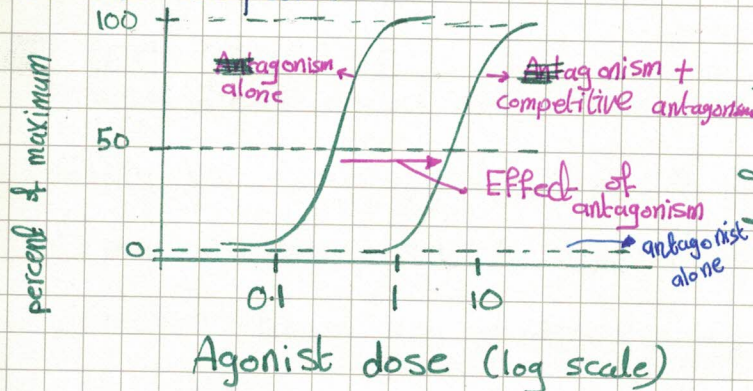 100
50
0
percent of maximum
Antagonism
alone
Antagonism +
competitive antagonism
Effect of
antagonism
antagonist
alone
0.1 1 10
Agonist dose (log scale)